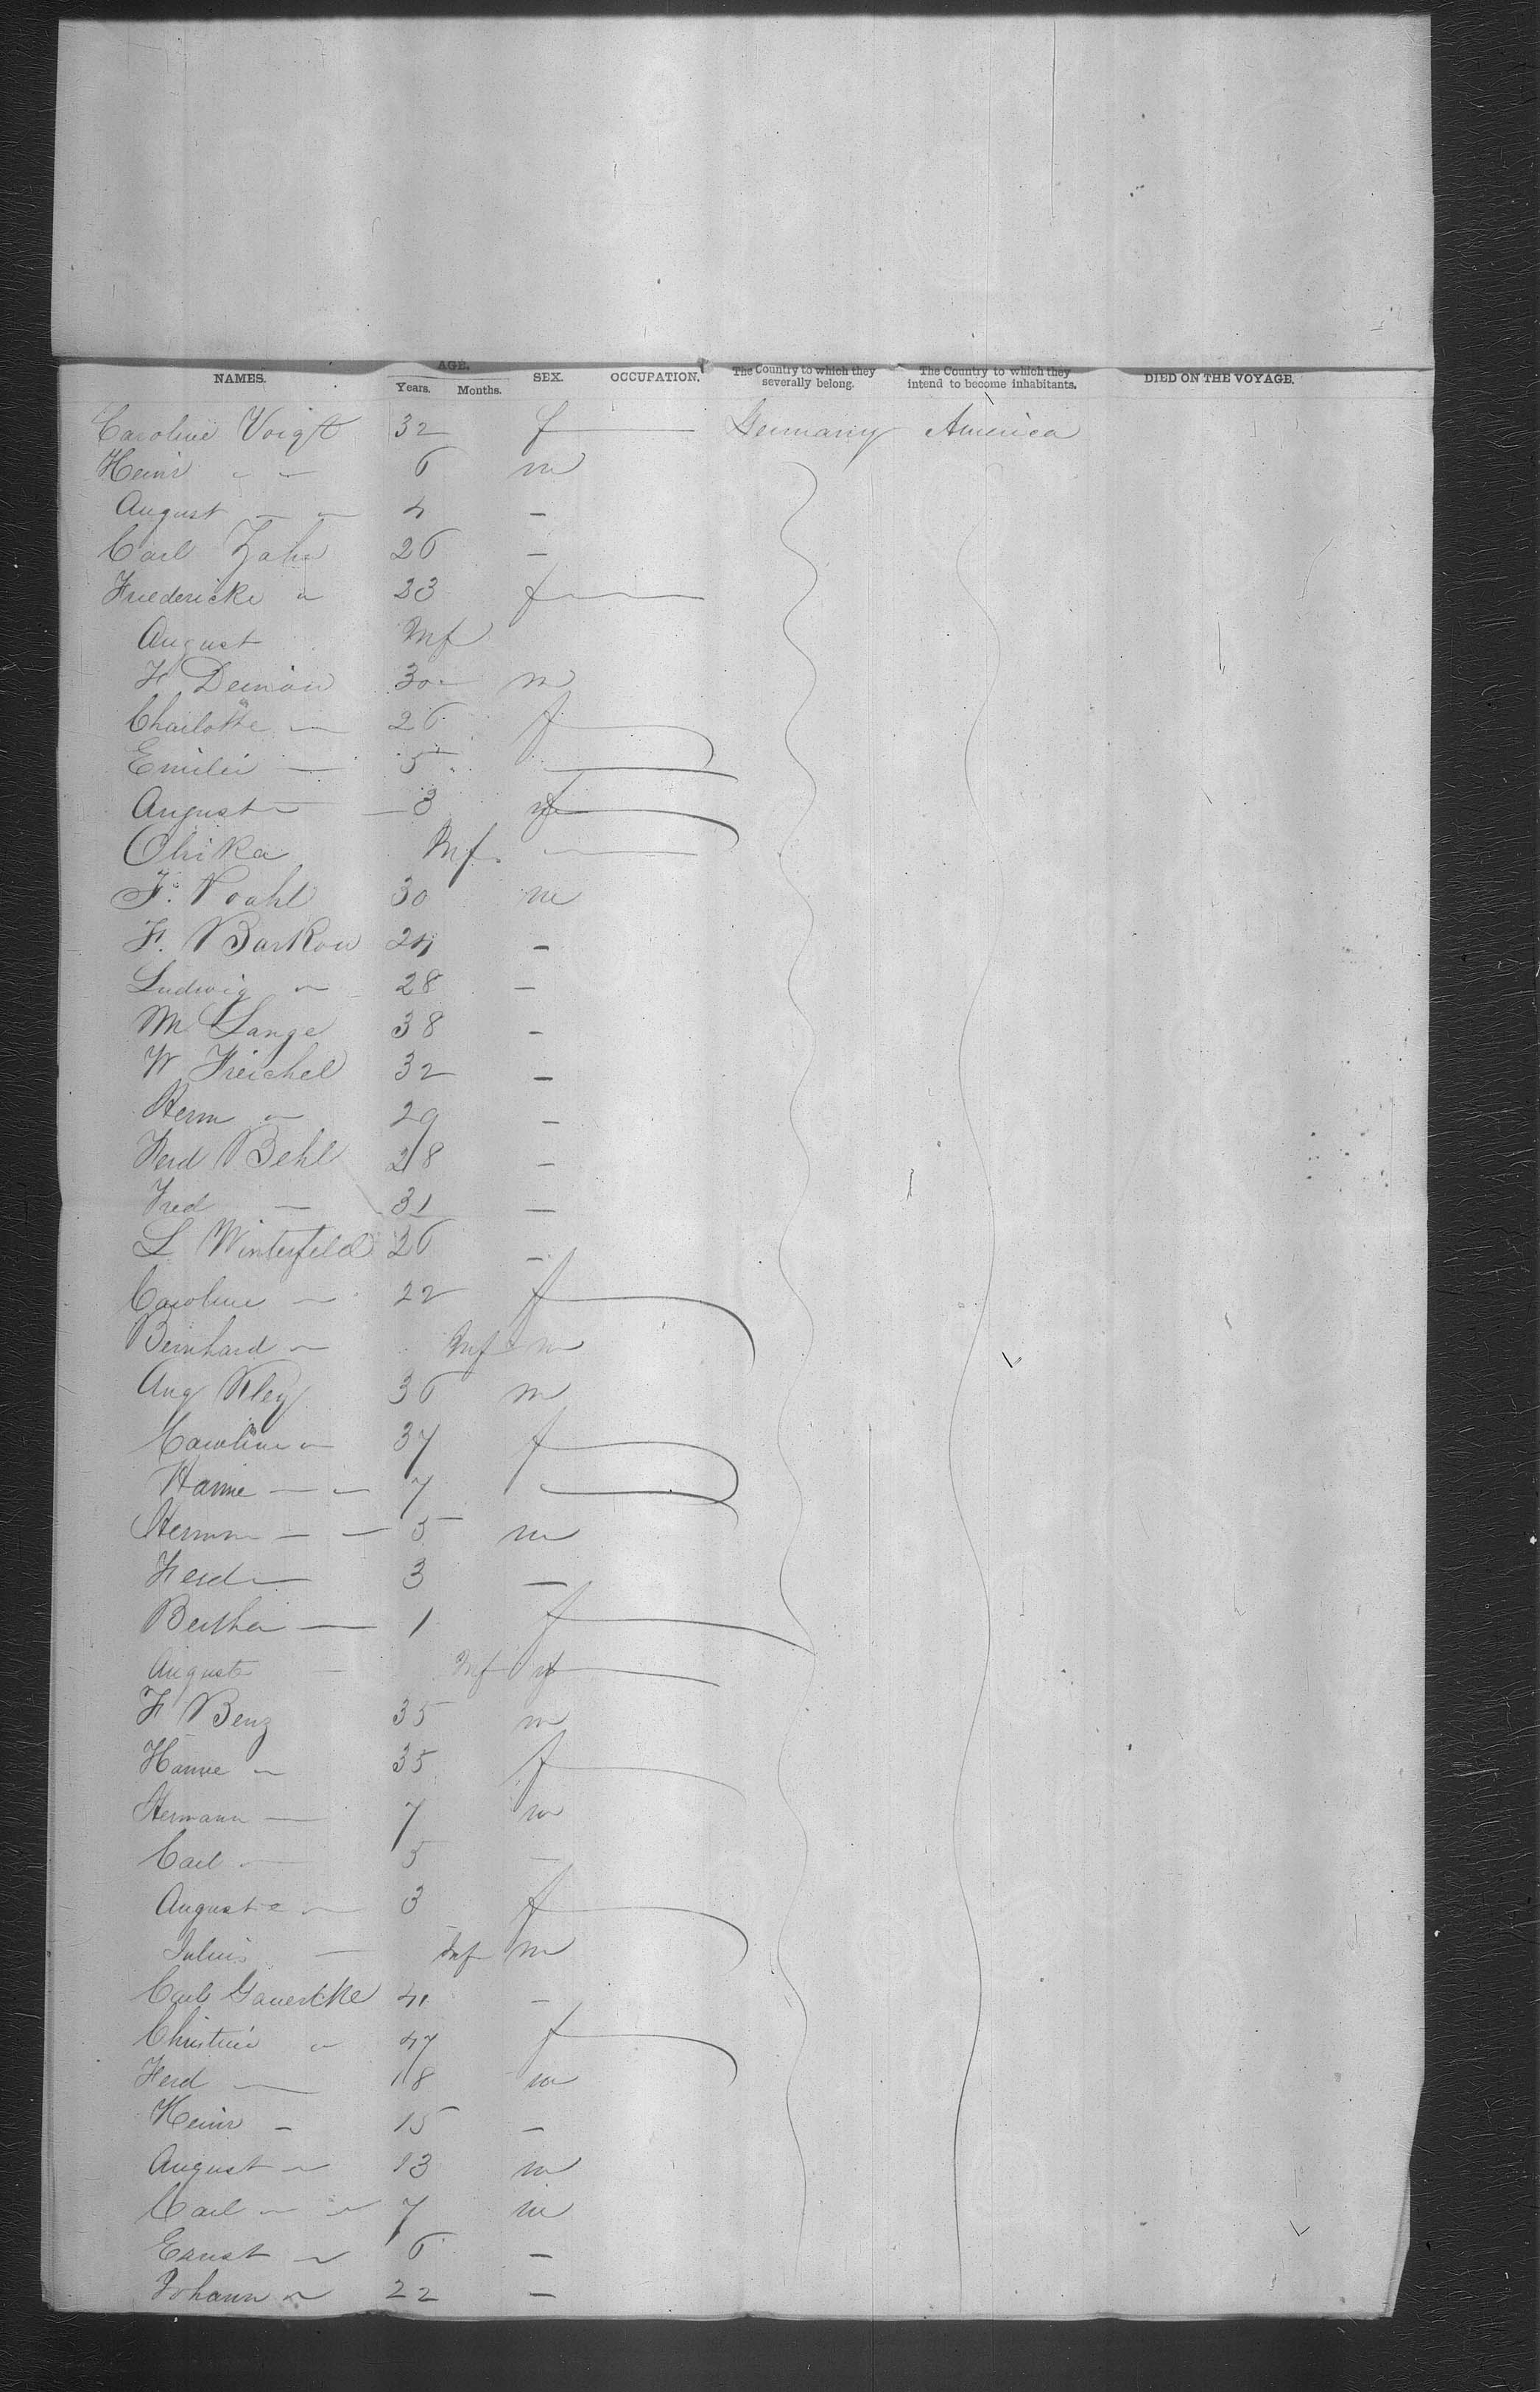 NAMES. AGE. Years. Months. SEX. OCCUPATION. The Country to which they severally belong. The Country to which they intend to become inhabitants. DIED ON THE VOYAGE.
Caroline Voigt 32 f — Germany America
Heinr " — 6 m
August — " 4 —
Carl Zahn 26 —
Friedericke " 23 f —
August Inf
F 30 m
Charlotte — 26 f
Emilie — 5
Auguste — 3 f
Inf. —
F. 30 m
F. Barkow 24 —
Ludwig " 28 —
M Lange 38 —
W 32 —
Herm " 29 —
Ferd Behl 28 —
Fred — 31 —
L Winterfeld 26 —
Caroline — 22 f
Bernhard — Inf m
Aug Kley 36 m
Caroline " 37 f
Hanne — — 7
Hermn — — 5 m
Ferd — 3 —
Bertha — 1 f
Auguste — Inf f
F Benz 35 m
Hanne — 35 f
Hermann — 7 m
Carl — 5 —
Auguste — 3 f
Julius — Inf m
Carl 41 —
Christine " 47 f
Ferd — 18 m
Heinr — 15 —
August — 13 m
Carl — — 7 m
Ernst — 6 —
Johann " 22 —